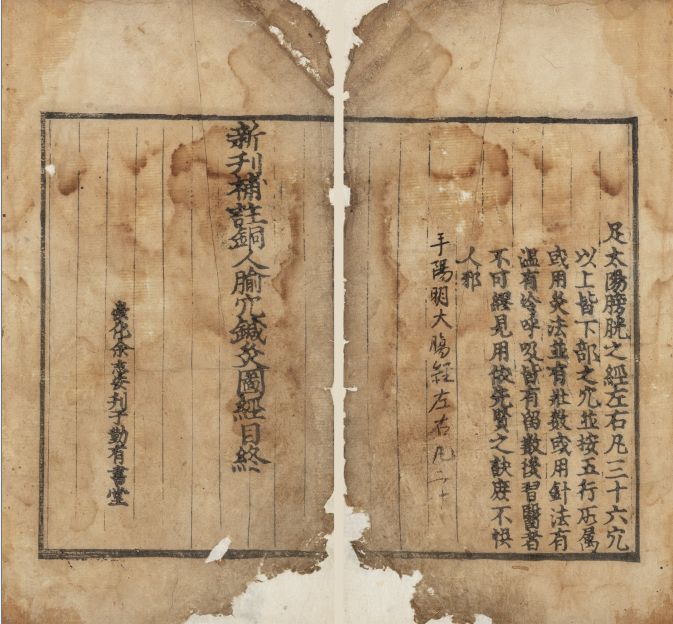 足太陽膀胱之經左右凡三十六穴
以上皆下部之穴並按五行所屬
或用灸法並有壯數或用針法有
溫有冷呼吸皆有留數後習醫者
不可繆見用先賢之訣庶不悞
人邪
手陽明大腸經左右凡二十
新刊補註銅人腧穴鍼灸圖經目終
崇化余志安刊于勤有書堂